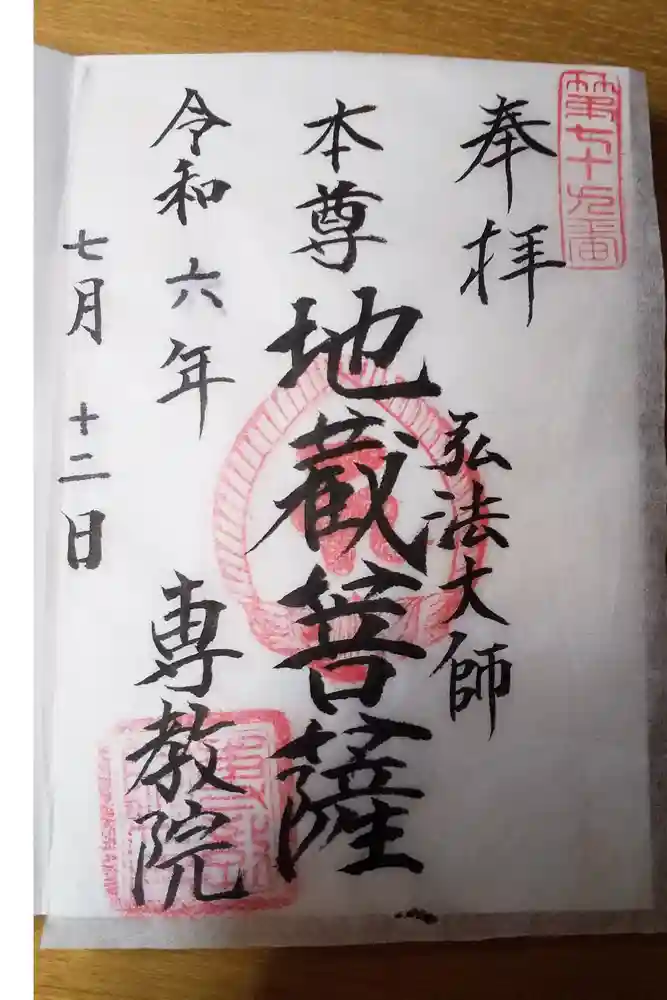 第七十九番
奉拝
弘法大師
本尊 地蔵菩薩
令和六年
七月十二日
専教院